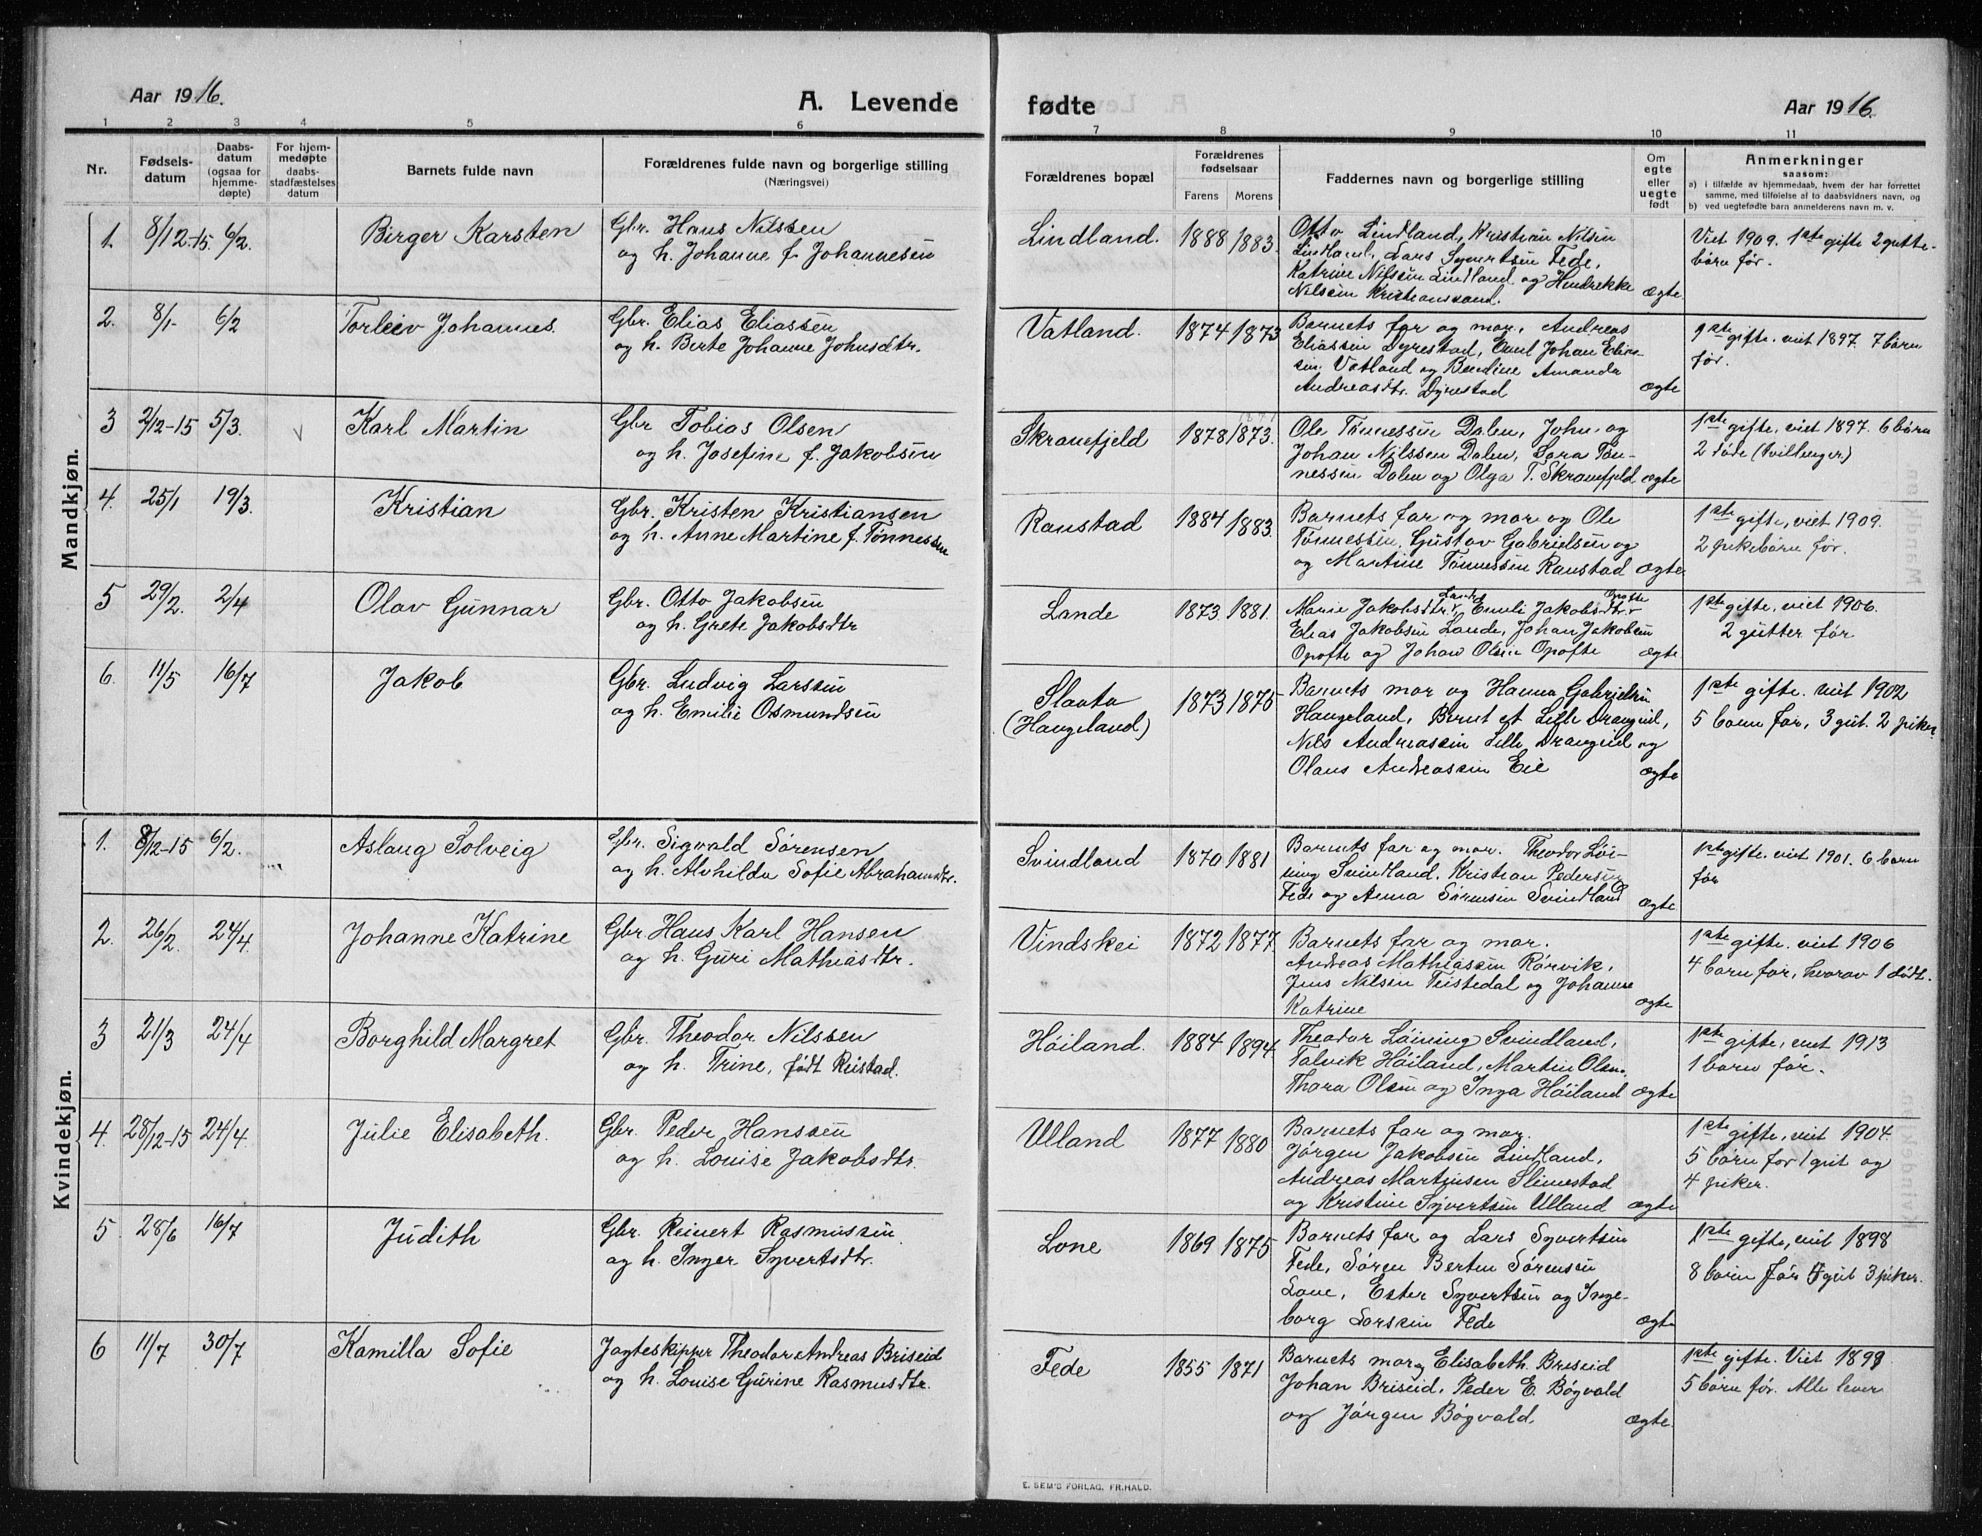 Aar 1916.
A. Levende
fødte
Aar 1916.
1 2 3 4 5 6 7 8 9 10 11
Nr.
Fødsels-
datum
Daabs-
datum
(ogsaa for
hjemme-
døpte)
For hjem-
medøpte
daabs-
stadfæstelses
datum
Barnets fulde navn
Forældrenes fulde navn og borgerlige stilling
(Næringsvei)
Forældrenes bopæl
Forældrenes
fødselsaar
Farens Morens
Faddernes navn og borgerlige stilling
Om
egte
eller
uegte
født
Anmerkninger
saasom:
a) i tilfælde av hjemmedaab, hvem der har forrettet
samme, med tilføielse af to daabsvidners navn, og
b) ved uegtefødte barn anmelderens navn m. v.
Mandkjøn.
1. 8/12-15 6/2. Birger Karsten
Gbr. Hans Nilssen
og h. Johanne f. Johannesen
Lindland. 1888 1883.
Otto Lindland, Kristian Nilsen
Lindland, Lars Syvertsen Fede,
Katrine Nilsen Lindland og Hendrekke
Nilsen Kristianssand. ægte
Viet 1909. 1ste gifte 2 gutte-
børn før.
2. 8/1- 6/2 Torleiv Johannes.
Gbr. Elias Eliassen
og h. Berte Johanne Johnsdtr.
Vatland. 1874 1873
Barnets far og mor, Andreas
Eliassen Dyrestad, Emil Johan Elias-
sen Vatland og Bendine Amanda
Andreasdtr. Dyrestad ægte
1ste gifte. viet 1897. 7 børn
før.
3 2/12-15 5/3. Karl Martin
Gbr Tobias Olsen
og h. Josefine f. Jakobsen
Skranefjeld 1878 1873.
Ole Tønnessen Dalen, John og
Johan Nilssen Dalen, Sara Tøn-
nessen Dalen og Olga T. Skranefjeld ægte
1ste gifte, viet 1897. 6 børn
2 døde (tvillinger)
4. 25/1 19/3. Kristian
Gbr. Kristen Kristiansen
og h. Anne Martine f. Tønnessen
Ranstad 1884 1883.
Barnets far og mor og Ole
Tønnessen, Gustav Gabrielsen og
og Martine Tønnessen Ranstad ægte
1ste gifte, viet 1909.
2 pikebørn før.
5 29/2. 2/4 Olav Gunnar
Gbr. Otto Jakobsen
og h. Grete Jakobsdtr
Lande 1873. 1881.
Lande Opofte
Marie Jakobsdtr. og Emili Jakobsdtr.
Elias Jakobsen Lande, Johan Jakobsen
Opofte og Johan Olsen Opofte ægte
1ste gifte, viet 1906.
2 gutter før
6. 11/5 16/7 Jakob
Gbr. Ludvig Larssen
og h. Emilie Osmundsen
Slaata
(Haugeland) 1873 1876
Barnets mor og Hanna Gabrielsen
Haugeland, Bernt et Lille Drangeid,
Nils Andreassen Lille Drangeid og
Olaus Andreassen Eie ægte
1ste gifte. viet 1902
5 børn før, 3 gut. 2 piker
Kvindekjøn.
1. 8/12-15 6/2. Aslaug Solveig
Gbr. Sigvald Sørensen
og h. Alvhilda Sofie Abrahamsdtr.
Svindland 1870 1881
Barnets far og mor. Theodor Løi-
ning Svindland, Kristian Pedersen
Fede og Anna Sørensen Svindland ægte
1ste gifte. viet 1901. 6 børn
før
2. 26/2. 24/4. Johanne Katrine
Gbr Hans Karl Hansen
og h. Guri Mathiasdtr.
Vindskei 1872 1877
Barnets far og mor.
Andreas Mathiassen Rørvik,
Jens Nilsen Teistedal og Johanne
Katrine ægte
1ste gifte. viet 1906
4 børn før, hvorav 1 dødt.
3 21/3 24/4 Borghild Margret
Gbr. Theodor Nilssen
og h. Trine, født Reistad.
Høiland. 1884 1894
Theodor Løining Svindland,
Talvik Høiland, Martin Olsen
Thora Olsen og Inga Høiland ægte
1ste gifte, viet 1913
1 børn før.
4. 28/12-15 24/4. Julie Elisabeth.
Gbr. Peder Hanssen
og h. Louise Jakobsdtr.
Ulland 1877 1880
Barnets far og mor.
Jørgen Jakobsen Lindland,
Andreas Martinsen Slimestad
og Kristine Syvertsen Ulland ægte
1ste gifte, viet 1904.
5 børn før 1 gut og
4 piker.
5 28/6 16/7 Judith
Gbr. Reinert Rasmussen
og h. Inger Syvertsdtr.
Lone 1869 1875
Barnets far og Lars Syvertsen
Fede, Søren Berten Sørensen
Lone, Ester Syvertsen og Inge-
borg Larsen Fede ægte
1ste gifte, viet 1898
8 børn før 5 gut 3 piker.
6 11/7 30/7 Kamilla Sofie
Jagteskipper Theodor Andreas Briseid
og h. Louise Gurine Rasmusdtr.
Fede 1855 1871
Barnets mor og Elisabeth Briseid
Johan Briseid, Peder E. Bøgvald
og Jørgen Bøgvald. ægte.
1ste gifte. Viet 1899
5 børn før. Alle lever
E. SEM'S FORLAG, FR.HALD.